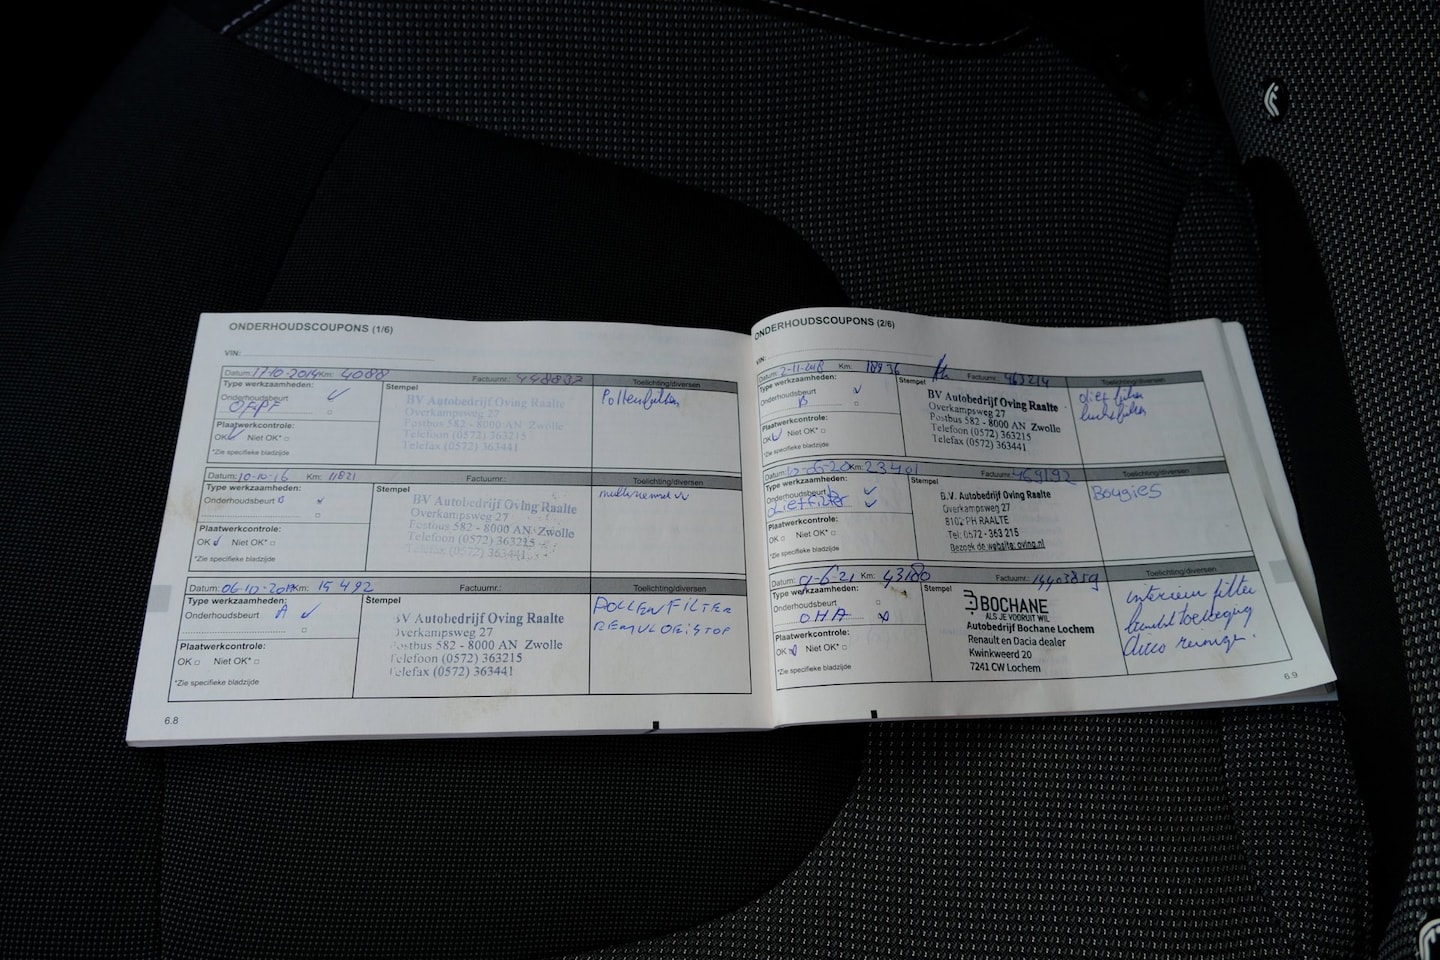 ONDERHOUDSCOUPONS (1/6)
VIN:
Datum: 17-10-2014 Km: 4088 Factuurnr.: 448837
Type werkzaamheden: Stempel Toelichting/diversen
Onderhoudsbeurt
Pollenfilter
BV Autobedrijf Oving Raalte
Overkampsweg 27
Postbus 582 - 8000 AN Zwolle
Telefoon (0572) 363215
Telefax (0572) 363441
Plaatwerkcontrole:
OK Niet OK*
*Zie specifieke bladzijde
Datum: 10-10-16 Km: 11821 Factuurnr.:
Type werkzaamheden: Stempel Toelichting/diversen
Onderhoudsbeurt B
BV Autobedrijf Oving Raalte
Overkampsweg 27
Postbus 582 - 8000 AN Zwolle
Telefoon (0572) 363215
Telefax (0572) 363441
Plaatwerkcontrole:
OK Niet OK*
*Zie specifieke bladzijde
Datum: 06-10- Km: 15 492 Factuurnr.: Toelichting/diversen
Type werkzaamheden: Stempel
Onderhoudsbeurt A
POLLENFILTER
REMVLOEISTOF
BV Autobedrijf Oving Raalte
Overkampsweg 27
Postbus 582 - 8000 AN Zwolle
Telefoon (0572) 363215
Telefax (0572) 363441
Plaatwerkcontrole:
OK Niet OK*
*Zie specifieke bladzijde
6.8
ONDERHOUDSCOUPONS (2/6)
VIN:
Datum: 2-11-2018 Km: 18936 Factuurnr.: 463214
Type werkzaamheden: Stempel Toelichting/diversen
Onderhoudsbeurt
B
filter
luchtfilter
BV Autobedrijf Oving Raalte
Overkampsweg 27
Postbus 582 - 8000 AN Zwolle
Telefoon (0572) 363215
Telefax (0572) 363441
Plaatwerkcontrole:
OK Niet OK*
*Zie specifieke bladzijde
Datum: 10-06-20 Km: 23401 Factuurnr.: 469192
Type werkzaamheden: Stempel Toelichting/diversen
Onderhoudsbeurt
Bougies
B.V. Autobedrijf Oving Raalte
Overkampsweg 27
8102 PH RAALTE
Tel: 0572 - 363 215
Bezoek de website: oving.nl
Plaatwerkcontrole:
OK Niet OK*
*Zie specifieke bladzijde
Datum: 01-6-21 Km: 43180 Factuurnr.: 14403859
Type werkzaamheden: Stempel Toelichting/diversen
Onderhoudsbeurt
OHA
interieur filter
Airco
BOCHANE
ALS JE VOORUIT WIL
Autobedrijf Bochane Lochem
Renault en Dacia dealer
Kwinkweerd 20
7241 CW Lochem
Plaatwerkcontrole:
OK Niet OK*
*Zie specifieke bladzijde
6.9